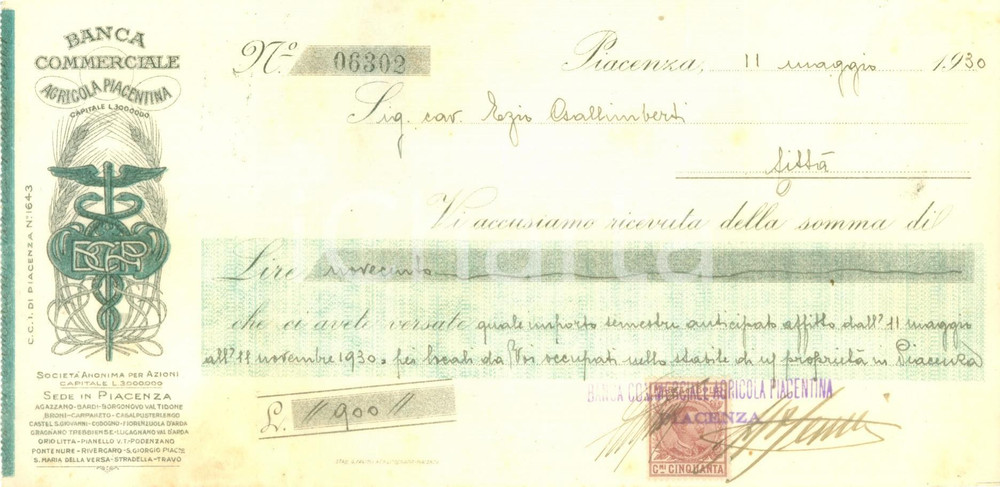 BANCA
COMMERCIALE
AGRICOLA PIACENTINA
CAPITALE L.3000000
C.C.I. DI PIACENZA N. 1643
BCAP
SOCIETÀ ANONIMA PER AZIONI
CAPITALE L.3000000
SEDE IN PIACENZA
AGAZZANO-BARDI-BORGONOVO VAL TIDONE
BRONI-CARPANETO-CASALPUSTERLENGO
CASTEL S.GIOVANNI-CODOGNO-FIORENZUOLA D'ARDA
GRAGNANO TREBBIENSE-LUGAGNANO VAL D'ARDA
ORIO LITTA-PIANELLO V.T.-PODENZANO
PONTENURE-RIVERGARO-S.GIORGIO PIAC.
S. MARIA DELLA VERSA-STRADELLA-TRAVO
N.º 06302
Piacenza, 11 maggio 1930
Sig. cav. Ezio
Città
Vi accusiamo ricevuta della somma di
Lire novecento
che ci avete versate quale importo semestre anticipato affitto dall' 11 maggio
all' 11 novembre 1930 = pei locali da Voi occupati nello stabile di n/ proprietà in Piacenza
L. // 900 //
BANCA COMMERCIALE AGRICOLA PIACENTINA
PIACENZA
CMI CINQUANTA